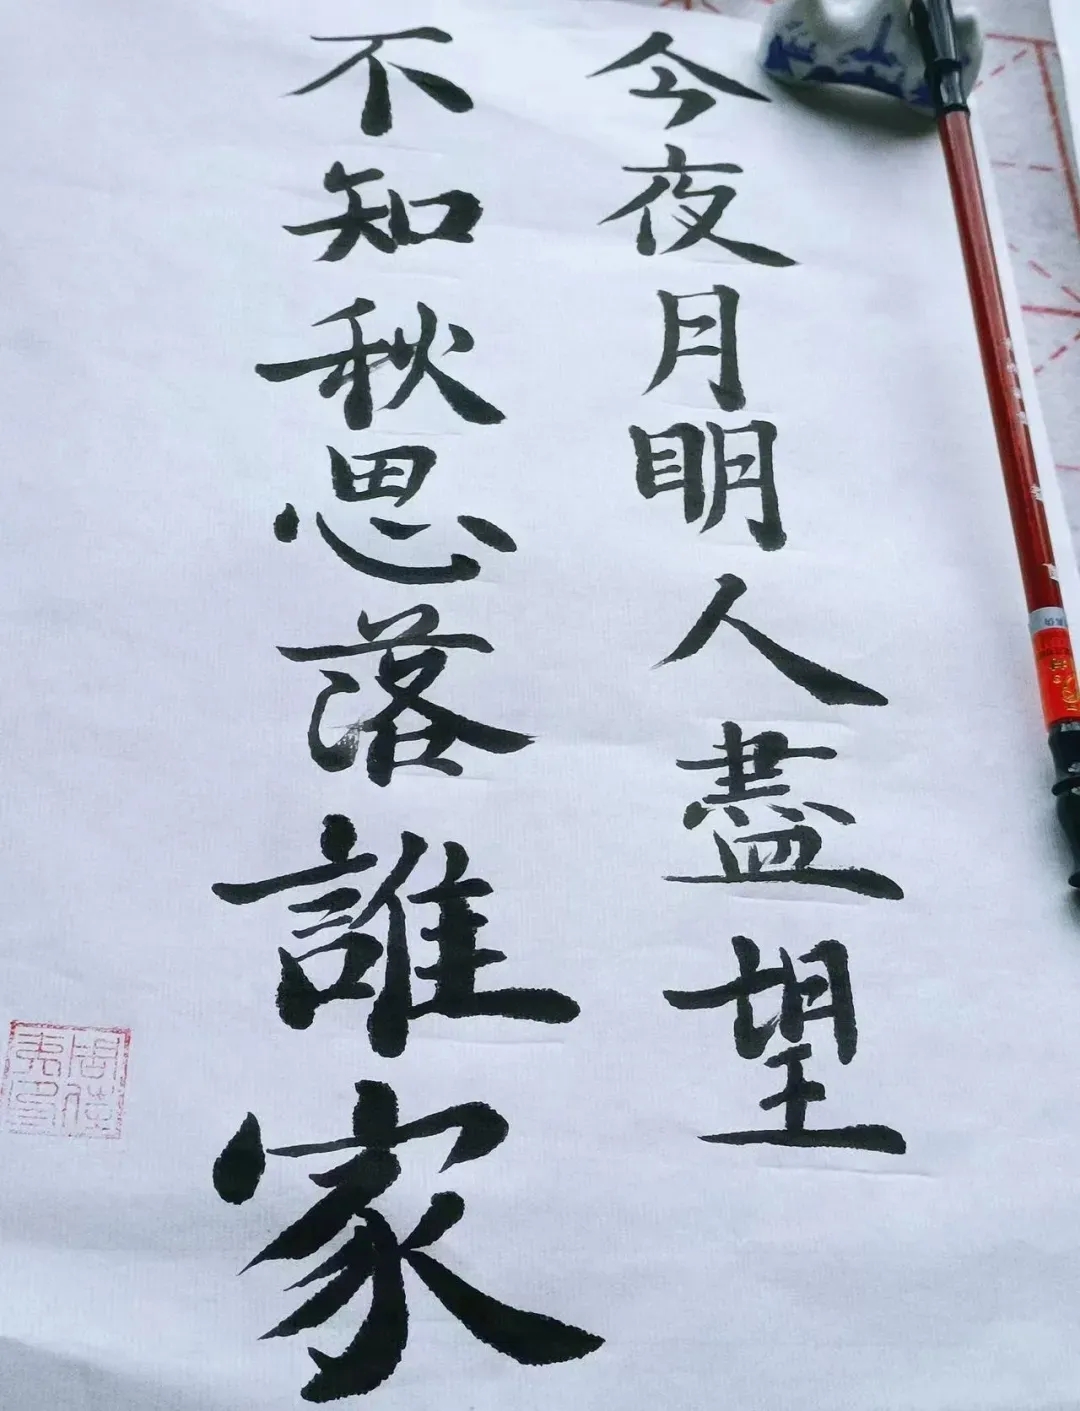 今夜月明人盡望
不知秋思落誰家